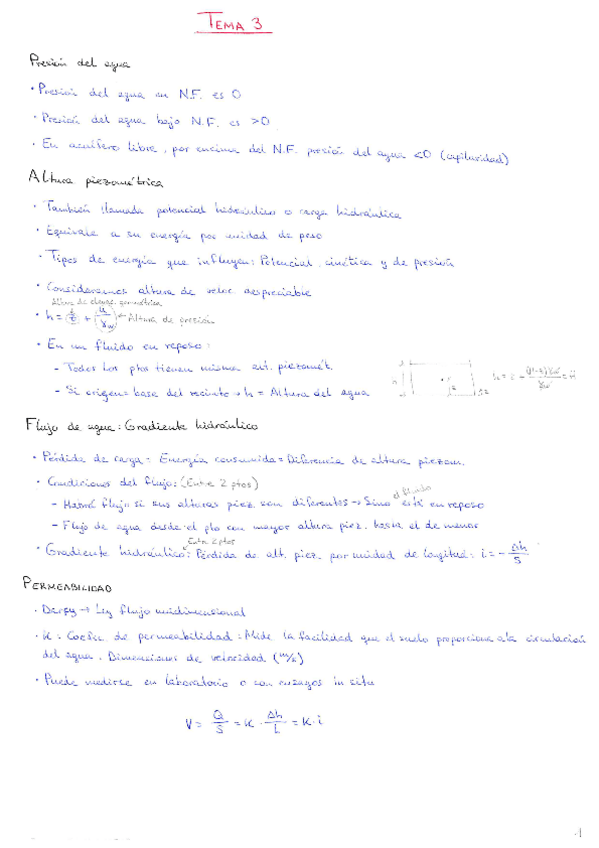 TEMA 3
Presión del agua
· Presión del agua en N.F. es 0
· Presión del agua bajo N.F. es >0
· En acuífero libre, por encima del N.F. presión del agua <0 (capilaridad)
Altura piezométrica
· También llamada potencial hidráulico o carga hidráulica
· Equivale a su energía por unidad de peso
· Tipos de energía que influyen: Potencial, cinética y de presión
· Consideramos altura de veloc. despreciable
Altura de geométrica
· h = z + u/γw ← Altura de presión
· En un fluido en reposo:
- Todos los ptos tienen misma alt. piezomét.
- Si origen base del recinto → h = Altura del agua
Flujo de agua: Gradiente hidráulico
· Pérdida de carga = Energía consumida = Diferencia de altura piezom.
· Condiciones del flujo: (Entre 2 ptos)
- Habrá flujo si sus alturas piez. son diferentes → Sino el fluido está en reposo
- Flujo de agua desde el pto con mayor altura piez. hasta el de menor
Entre 2 ptos
· Gradiente hidráulico: Pérdida de alt. piez. por unidad de longitud: i = - Δh/S
PERMEABILIDAD
· Darcy → Ley flujo unidimensional
· K: Coefic. de permeabilidad: Mide la facilidad que el suelo proporciona a la circulación
del agua. Dimensiones de velocidad (m/s)
· Puede medirse en laboratorio o con ensayos in situ
V = Q/S = K · Δh/L = K·i
1